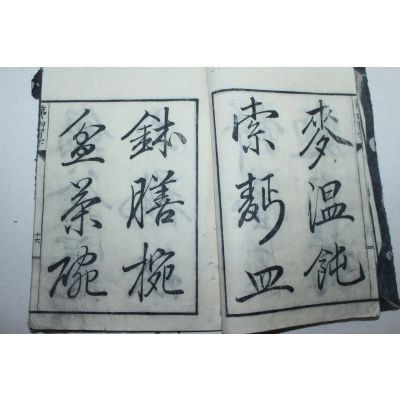 麥温飩
索麪皿
鉢膳椀
盆茶碗
十六